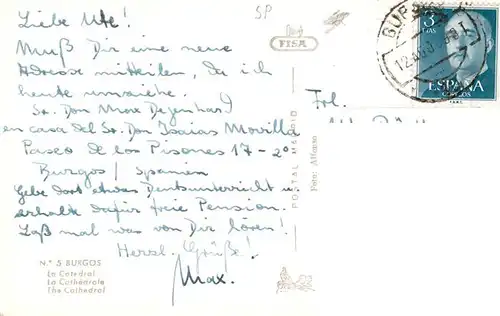 Liebe Ute!
Muß Dir eine neue
Adresse mitteilen, da ich
heute umziehe.
Sr. Don Max Degenhard
en casa del Sr. Don Isaias Movilla
Paseo de los Pisones 17 - 2º
Burgos / Spanien
Gebe dort etwas Deutschunterricht u.
erhalte dafür freie Pension.
Laß mal was von Dir hören!
Herzl. Grüße!
Max.
N.º 5 BURGOS
La Catedral
La Cathédrale
The Cathedral
SP
VISA
POSTAL MADRID
Foto: Alfonso
Frl.
BURGOS
3
PTAS
ESPAÑA
CORREOS